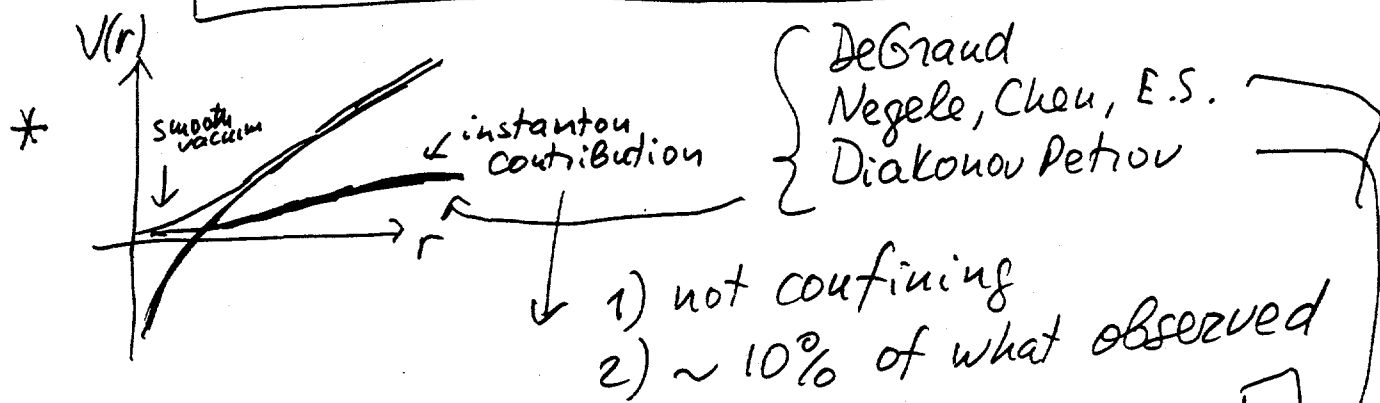 V(r)
*
smooth
vacuum
instanton
contribution
r
DeGrand
Negele, Chen, E.S.
Diakonov Petrov
1) not confining
2) ~ 10% of what observed